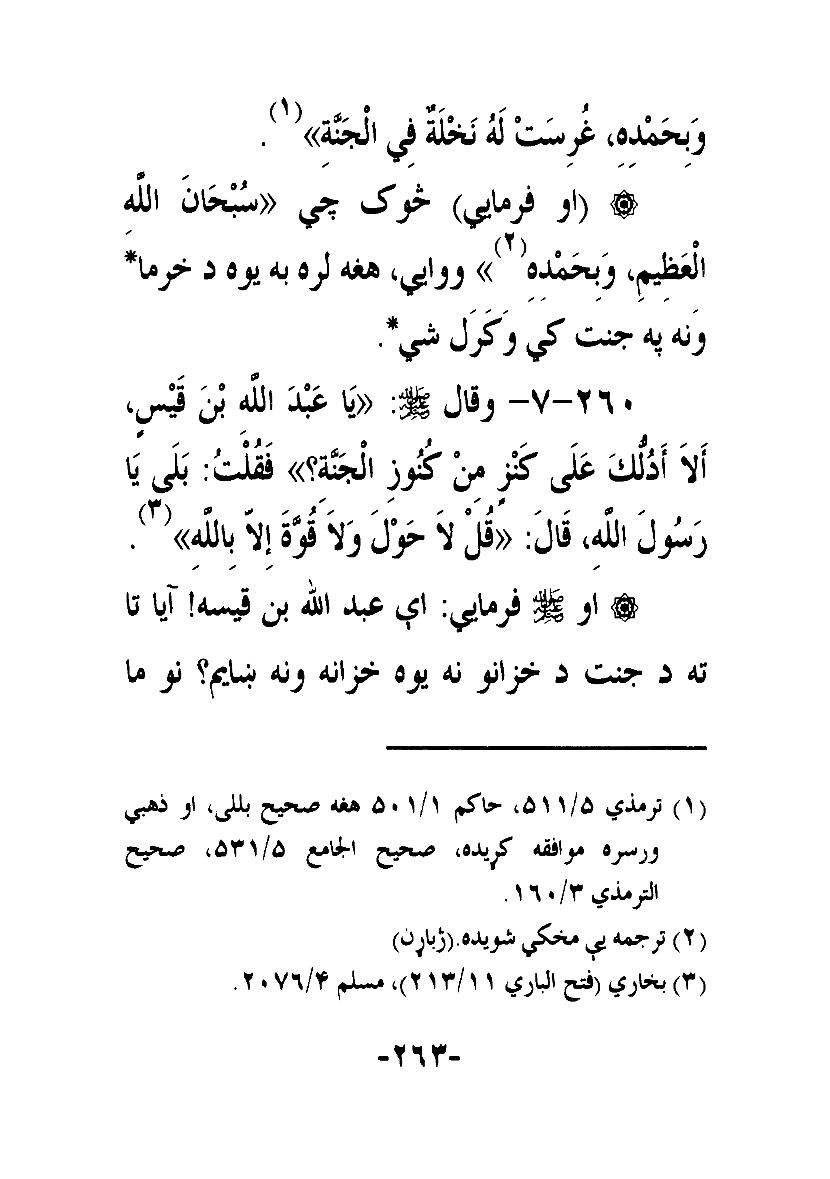 وَبِحَمْدِهِ، غُرِسَتْ لَهُ نَخْلَةٌ فِي الْجَنَّةِ»(١).
۞ (او فرمايي) څوک چي «سُبْحَانَ اللَّهِ
الْعَظِيمِ، وَبِحَمْدِهِ(٢)» ووايي، هغه لره به يوه د خرما*
وَنه په جنت کي وکَرَل شي*.
٢٦٠-٧- وقال ﷺ: «يَا عَبْدَ اللَّهِ بْنَ قَيْسٍ،
أَلاَ أَدُلُّكَ عَلَى كَنْزٍ مِنْ كُنُوزِ الْجَنَّةِ؟» فَقُلْتُ: بَلَى يَا
رَسُولَ اللَّهِ، قَالَ: «قُلْ لاَ حَوْلَ وَلاَ قُوَّةَ إِلاّ بِاللَّهِ»(٣).
۞ او ﷺ فرمايي: اې عبد الله بن قيسه! آيا تا
ته د جنت د خزانو نه يوه خزانه ونه ښايم؟ نو ما
(١) ترمذي ٥١١/٥، حاکم ٥٠١/١ هغه صحيح بللى، او ذهبي
ورسره موافقه کړيده، صحيح الجامع ٥٣١/٥، صحيح
الترمذي ١٦٠/٣.
(٢) ترجمه يې مخکي شويده.(ژباړن)
(٣) بخاري (فتح الباري ٢١٣/١١)، مسلم ٢٠٧٦/۴.
-٢٦٣-